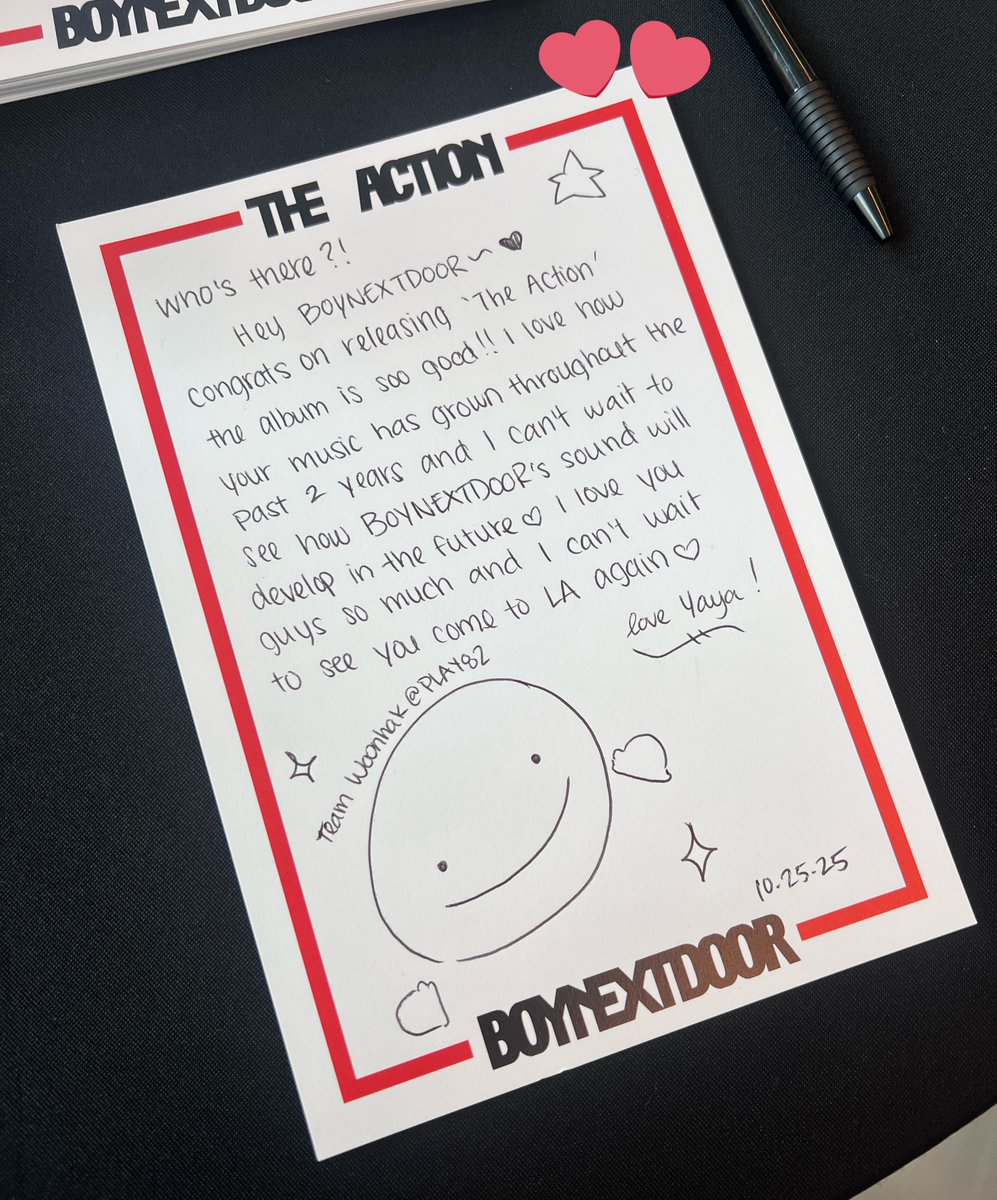 BOYNEXTDOOR
THE ACTION
who's there?!
Hey BOYNEXTDOOR~ ♥
congrats on releasing 'The Action'
the album is soo good!! I love how
your music has grown throughout the
past 2 years and I can't wait to
see how BOYNEXTDOOR's sound will
develop in the future♡ I love you
guys so much and I can't wait
to see you come to LA again♡
love Yaya!
Team Woonhak@PLAY82
10.25.25
BOYNEXTDOOR